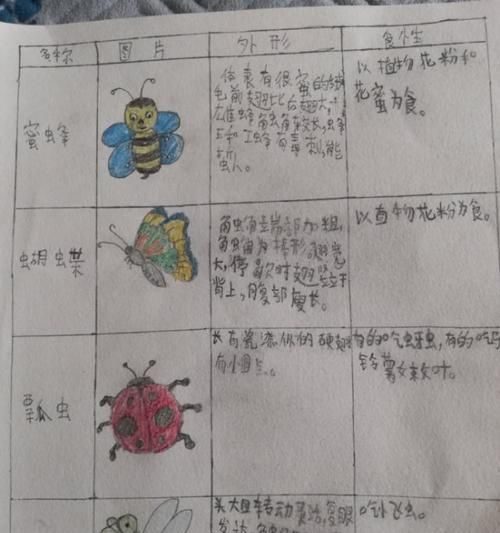 名称 图片 外形 食性
蜜蜂
体表有很蜜的绒
毛前翅比后翅大,
雄蜂触角较长,蜂
王和工蜂有毒刺,能
蜇人。
以植物花粉和
花蜜为食。
蝴蝶
触角端部加粗,
触角为棒形。翅宽
大,停歇时翅竖立于
背上,腹部瘦长。
以直物花粉为食。
瓢虫
长有瓷漆似的硬翅
有小圆
有的吃蚜虫,有的吃马
铃薯
叶。
头大且转动灵活,复眼
发达,
吃小飞虫。